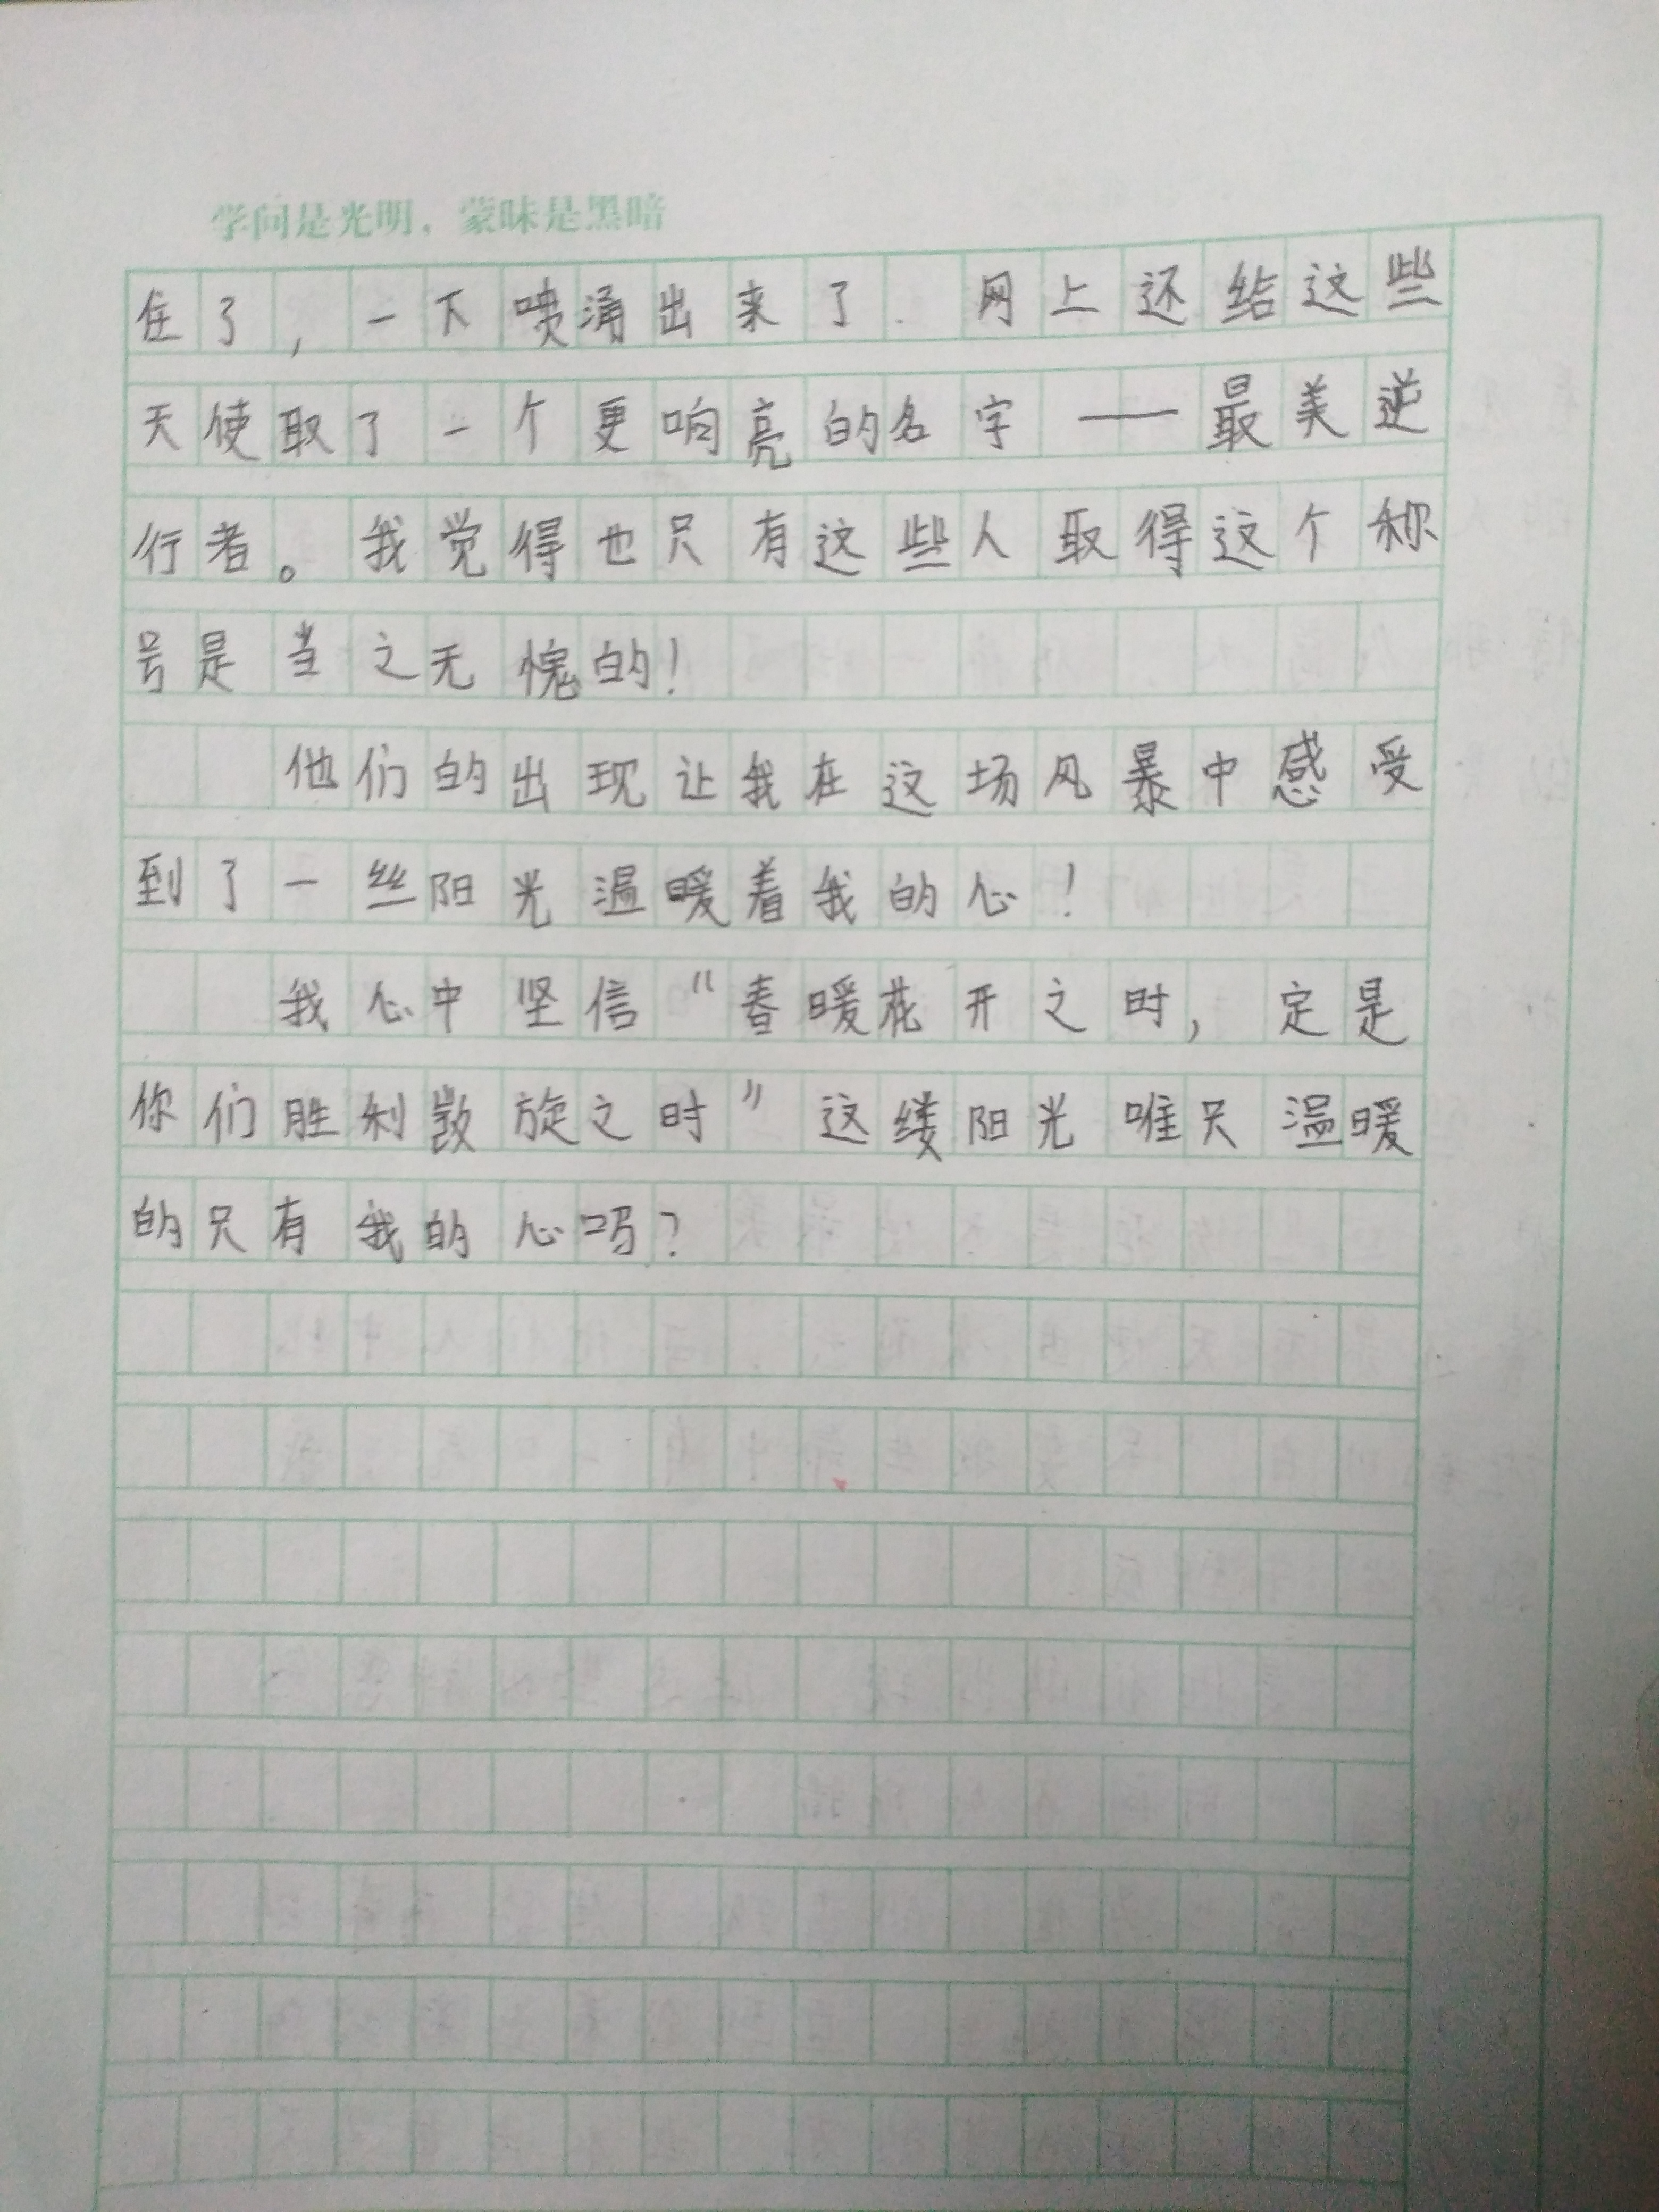 学问是光明，蒙昧是黑暗
住了，一下喷涌出来了.网上还给这些
天使取了一个更响亮的名字——最美逆
行者。我觉得也只有这些人取得这个称
号是当之无愧的！
他们的出现让我在这场风暴中感受
到了一丝阳光温暖着我的心！
我心中坚信“春暖花开之时，定是
你们胜利凯旋之时”这缕阳光唯只温暖
的只有我的心吗？